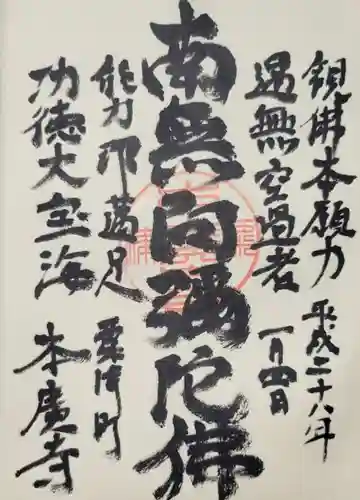 観佛本願力
遇無空過者
平成二十八年
一月四日
南無向彌陀佛
能令速満足
功徳大宝海
粟津町
本廣寺